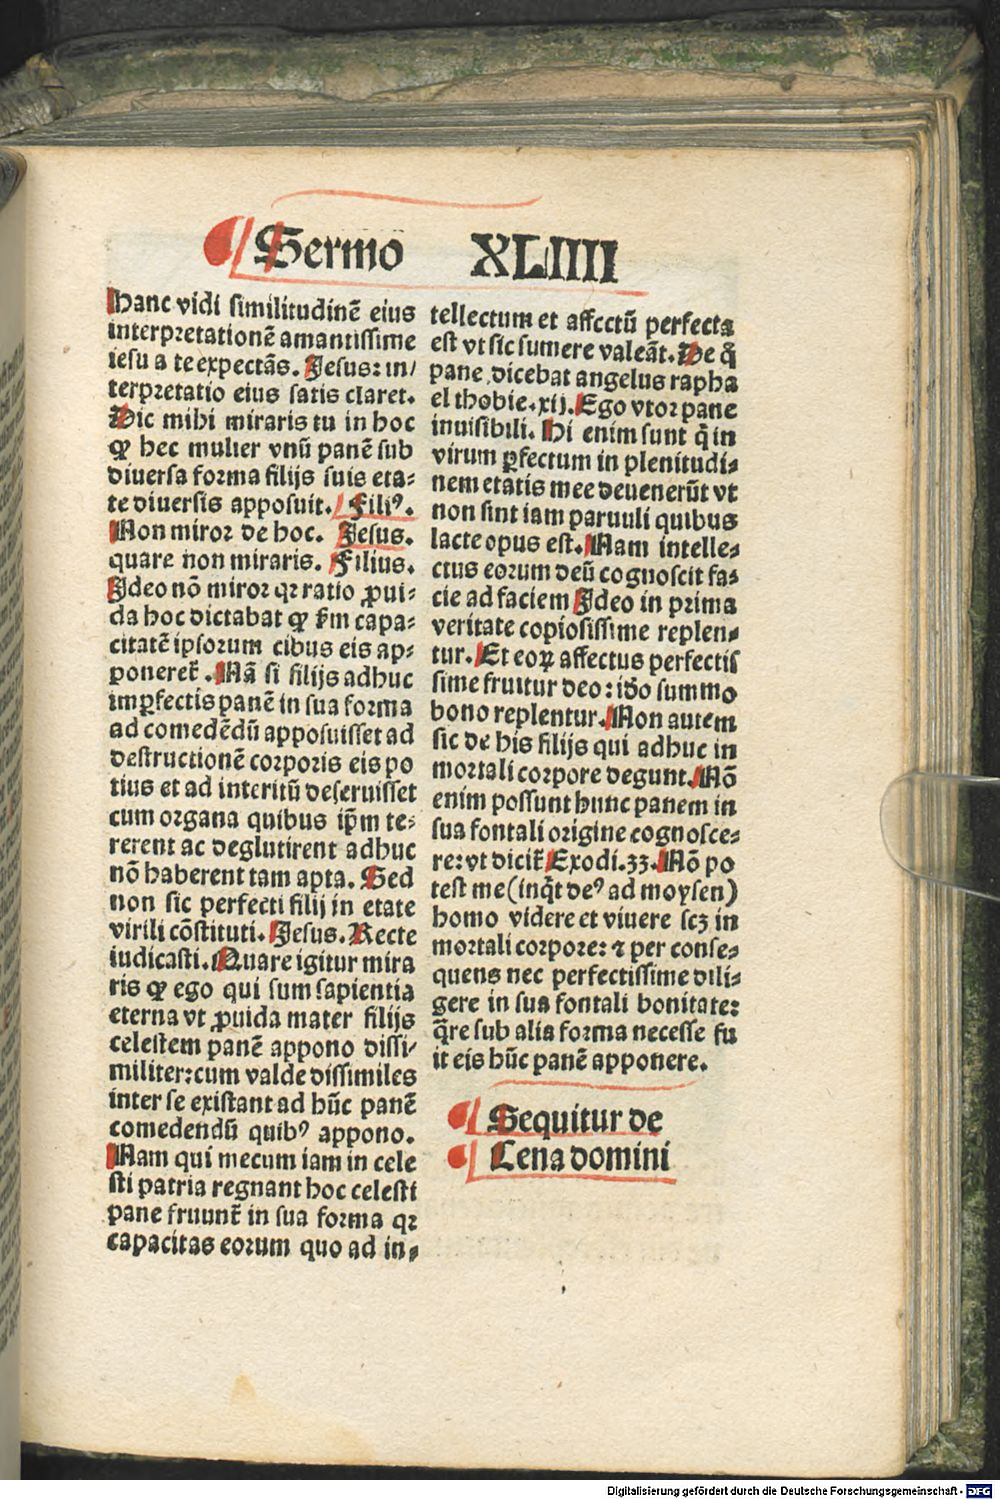 Sermo XLIIII
Hanc vidi similitudinē eius
interpretationē amantissime
iesu a te expectās. Jesus: in/
terpretatio eius satis claret.
Dic mihi miraris tu in hoc
ꝙ hec mulier vnū panē sub
diuersa forma filijs suis eta⸗
te diuersis apposuit. Filiꝰ.
Non miror de hoc. Jesus.
quare non miraris. Filius.
Ideo nō miror qꝛ ratio ꝓui⸗
da hoc dictabat ꝙ ẜm capa⸗
citatē ipsorum cibus eis ap⸗
poneret᷑. Nā si filijs adhuc
imꝑfectis panē in sua forma
ad comedēdū apposuisset ad
destructionē corporis eis po
tius et ad interitū deseruisset
cum organa quibus ip̄m te⸗
rerent ac deglutirent adhuc
nō haberent tam apta. Sed
non sic perfecti filij in etate
virili cōstituti. Jesus. Recte
iudicasti. Quare igitur mira
ris ꝙ ego qui sum sapientia
eterna vt ꝓuida mater filijs
celestem panē appono dissi/
militer: cum valde dissimiles
inter se existant ad hūc panē
comedendū quibꝰ appono.
Nam qui mecum iam in cele
sti patria regnant hoc celesti
pane fruunt᷑ in sua forma qꝛ
capacitas eorum quo ad in⸗
tellectum et affectū perfecta
est vt sic sumere valeāt. De q̄
pane dicebat angelus rapha
el thobie. xij. Ego vtor pane
inuisibili. Hi enim sunt q̄ in
virum ꝑfectum in plenitudi⸗
nem etatis mee deuenerūt vt
non sint iam paruuli quibus
lacte opus est. Nam intelle⸗
ctus eorum deū cognoscit fa⸗
cie ad faciem Ideo in prima
veritate copiosissime replen⸗
tur. Et eoꝝ affectus perfectis
sime fruitur deo: iđo summo
bono replentur. Non autem
sic de his filijs qui adhuc in
mortali corpore degunt. Nō
enim possunt hunc panem in
sua fontali origine cognosce⸗
re: vt dicit᷑ Exodi. 33. Nō po
test me (inq̄t deꝰ ad moysen)
homo videre et viuere scꝫ in
mortali corpore: ⁊ per conse⸗
quens nec perfectissime dili⸗
gere in sua fontali bonitate:
q̄re sub alia forma necesse fu
it eis hūc panē apponere.
Sequitur de
Cena domini
Digitalisierung gefördert durch die Deutsche Forschungsgemeinschaft - DFG